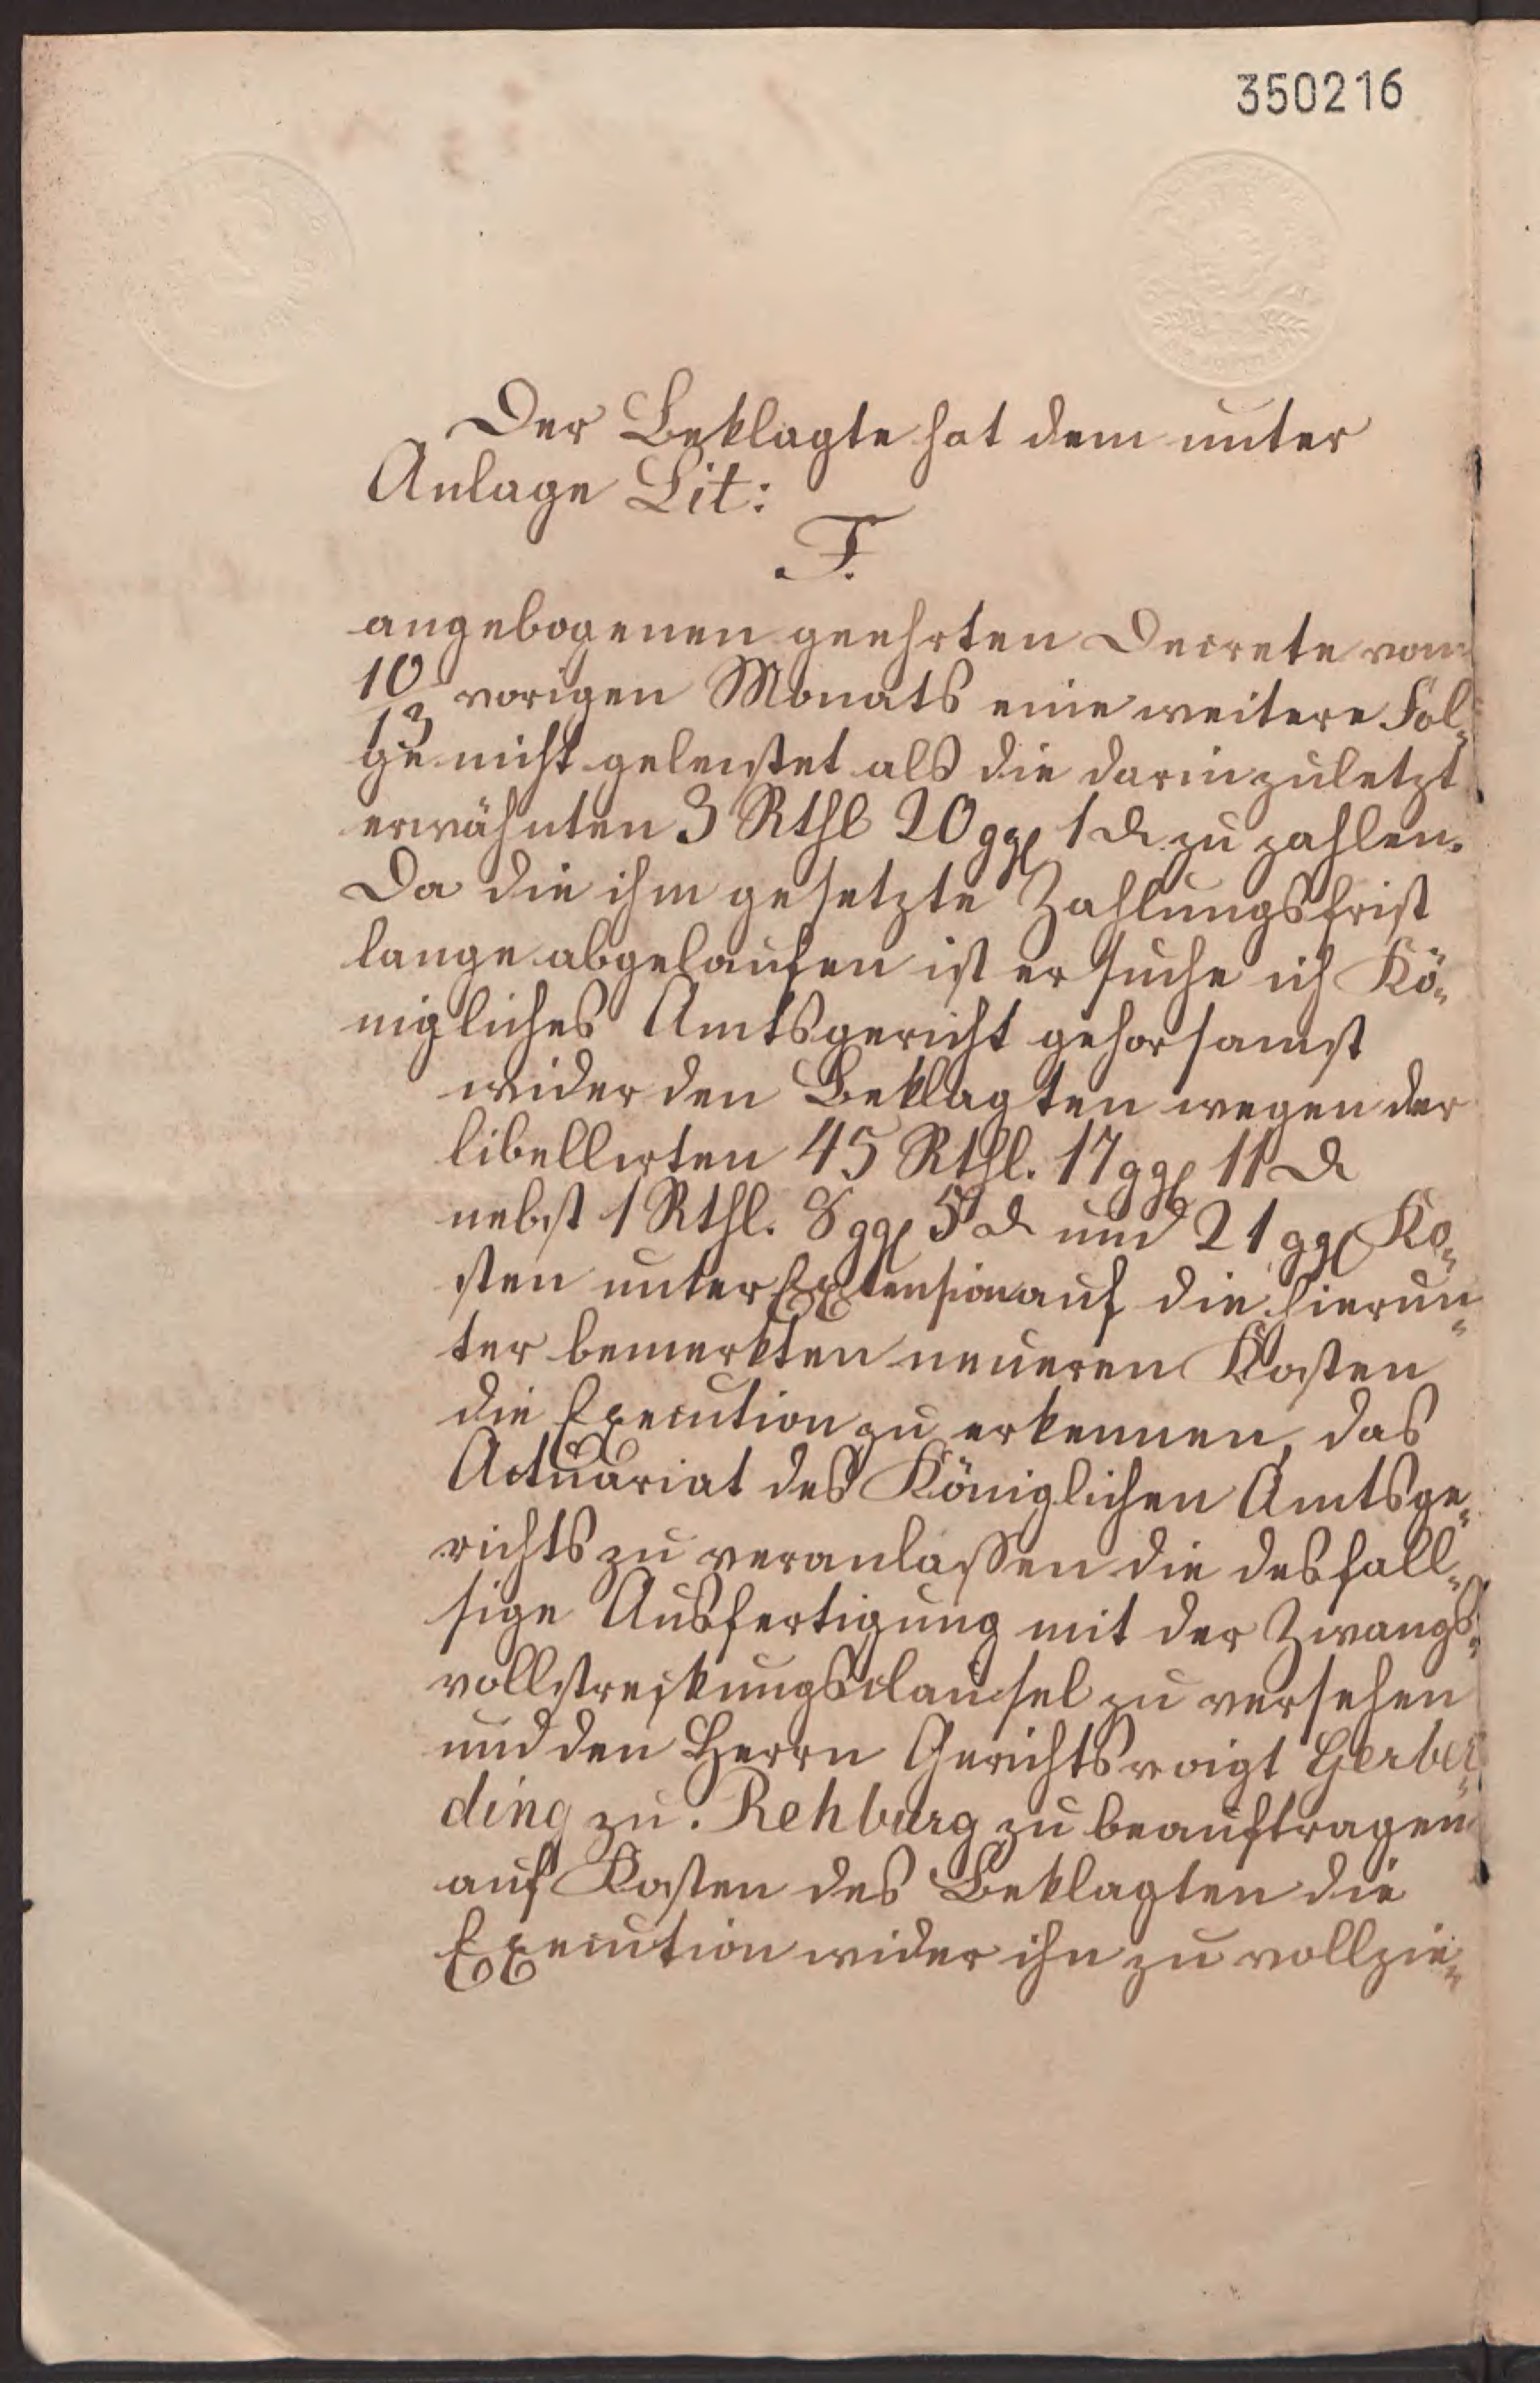 350216
Der Beklagte hat dem unter
Anlage Lit:
F.
angebogenen geehrten Decrete vom
10/13 vorigen Monats eine weitere Fol-
ge nicht geleistet als die darin zuletzt
erwähnten 3 Rthl 20 ggl 1 d zu zahlen.
Da die ihm gesetzte Zahlungsfrist
lange abgelaufen ist ersuche ich Kö-
nigliches Amtsgericht gehorsamst
wider den Beklagten wegen der
libellirten 45 Rthl. 17 ggl 11 d
nebst 1 Rthl. 8 ggl 5 d und 21 ggl Ko-
sten unter Extension auf die hierun-
ter bemerkten neueren Kosten
die Execution zu erkennen, das
Actuariat des Königlichen Amtsge-
richts zu veranlassen die desfall-
sige Ausfertigung mit der Zwangs-
vollstreckungsclausel zu versehen
und den Herrn Gerichtsvoigt Gerber-
ding zu Rehburg zu beauftragen
auf Kosten des Beklagten die
Execution wider ihn zu vollzie-